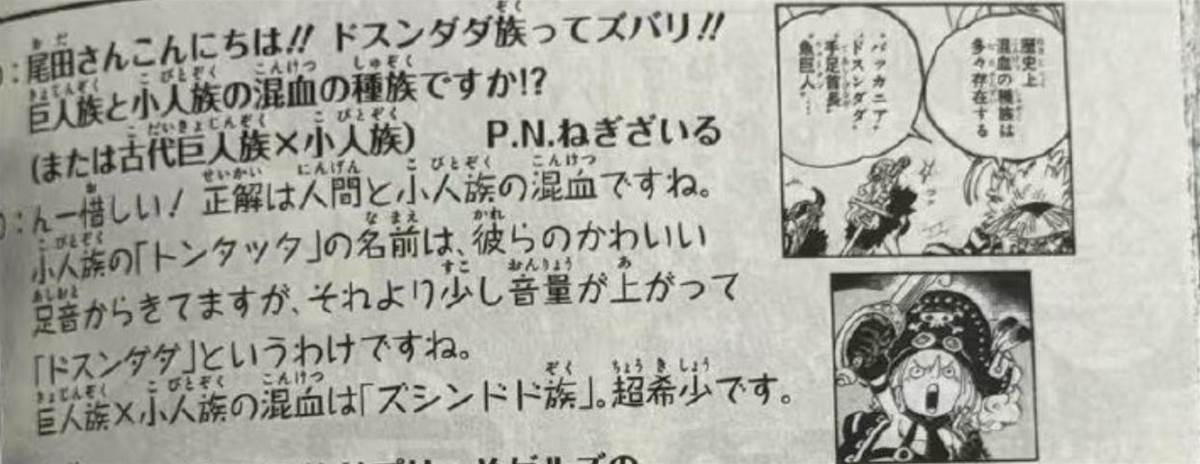 尾田さんこんにちは!! ドスンダダ族ってズバリ!!
巨人族と小人族の混血の種族ですか!?
(または古代巨人族×小人族) P.N.ねぎざいる
:んー惜しい! 正解は人間と小人族の混血ですね。
小人族の「トンタッタ」の名前は、彼らのかわいい
足音からきてますが、それより少し音量が上がって
「ドスンダダ」というわけですね。
巨人族×小人族の混血は「ズシンドド族」。超希少です。
歴史上
混血の種族は
多々存在する
バッカニア
ドスンダダ
手足首長
魚巨人…